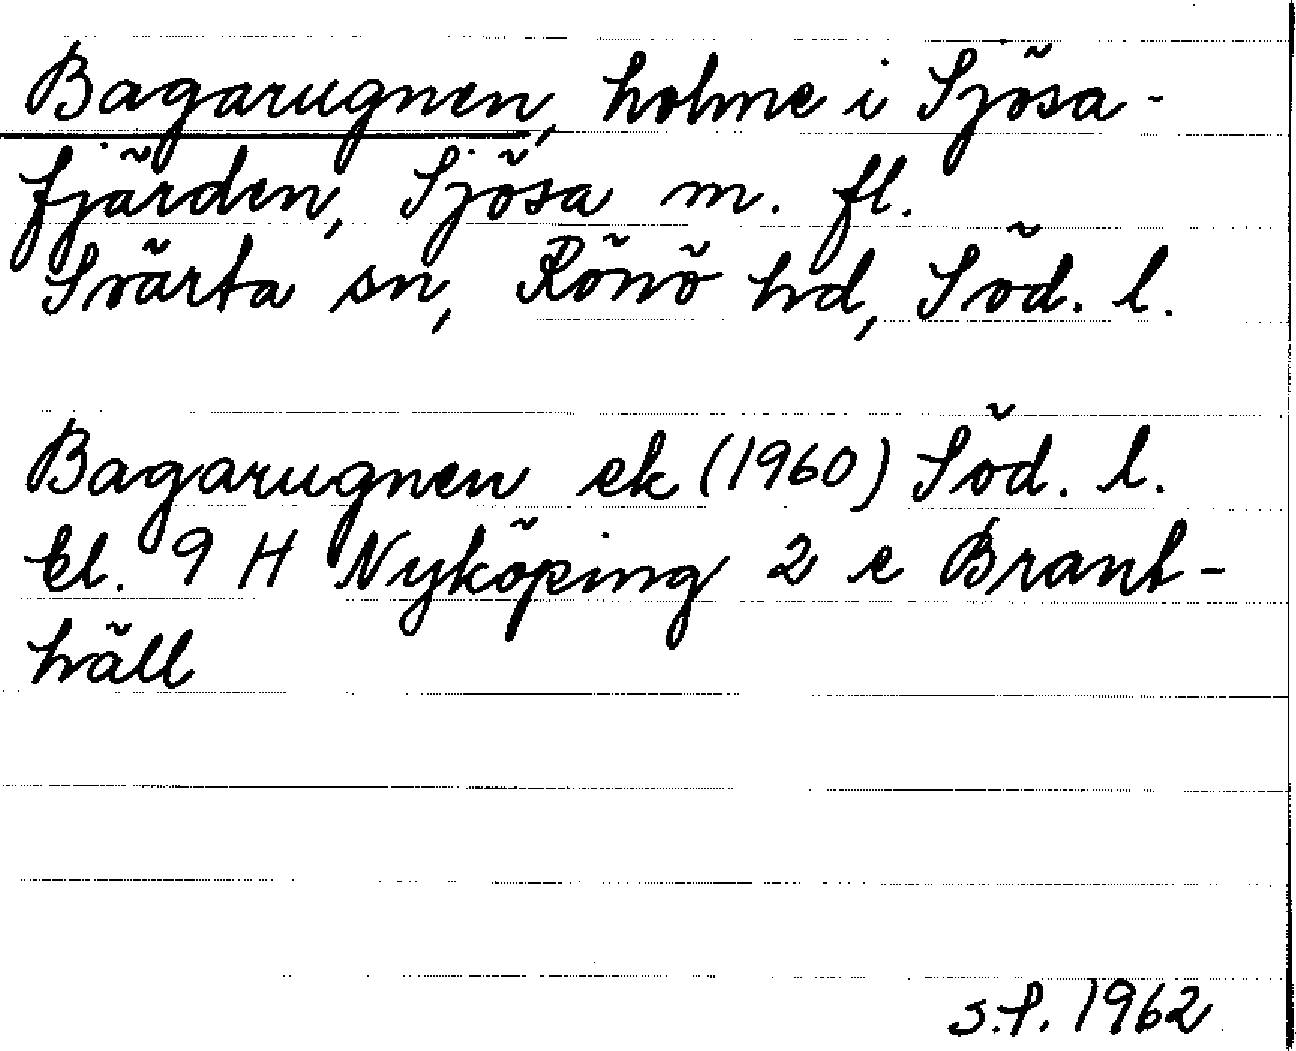 Bagarugnen, holme i Sjösa-
fjärden, Sjösa m. fl.
Svärta sn, Rönö hd, Söd. l.
Bagarugnen ek (1960) Söd. l.
bl. 9 H Nyköping 2 e Brant-
häll
s.f. 1962